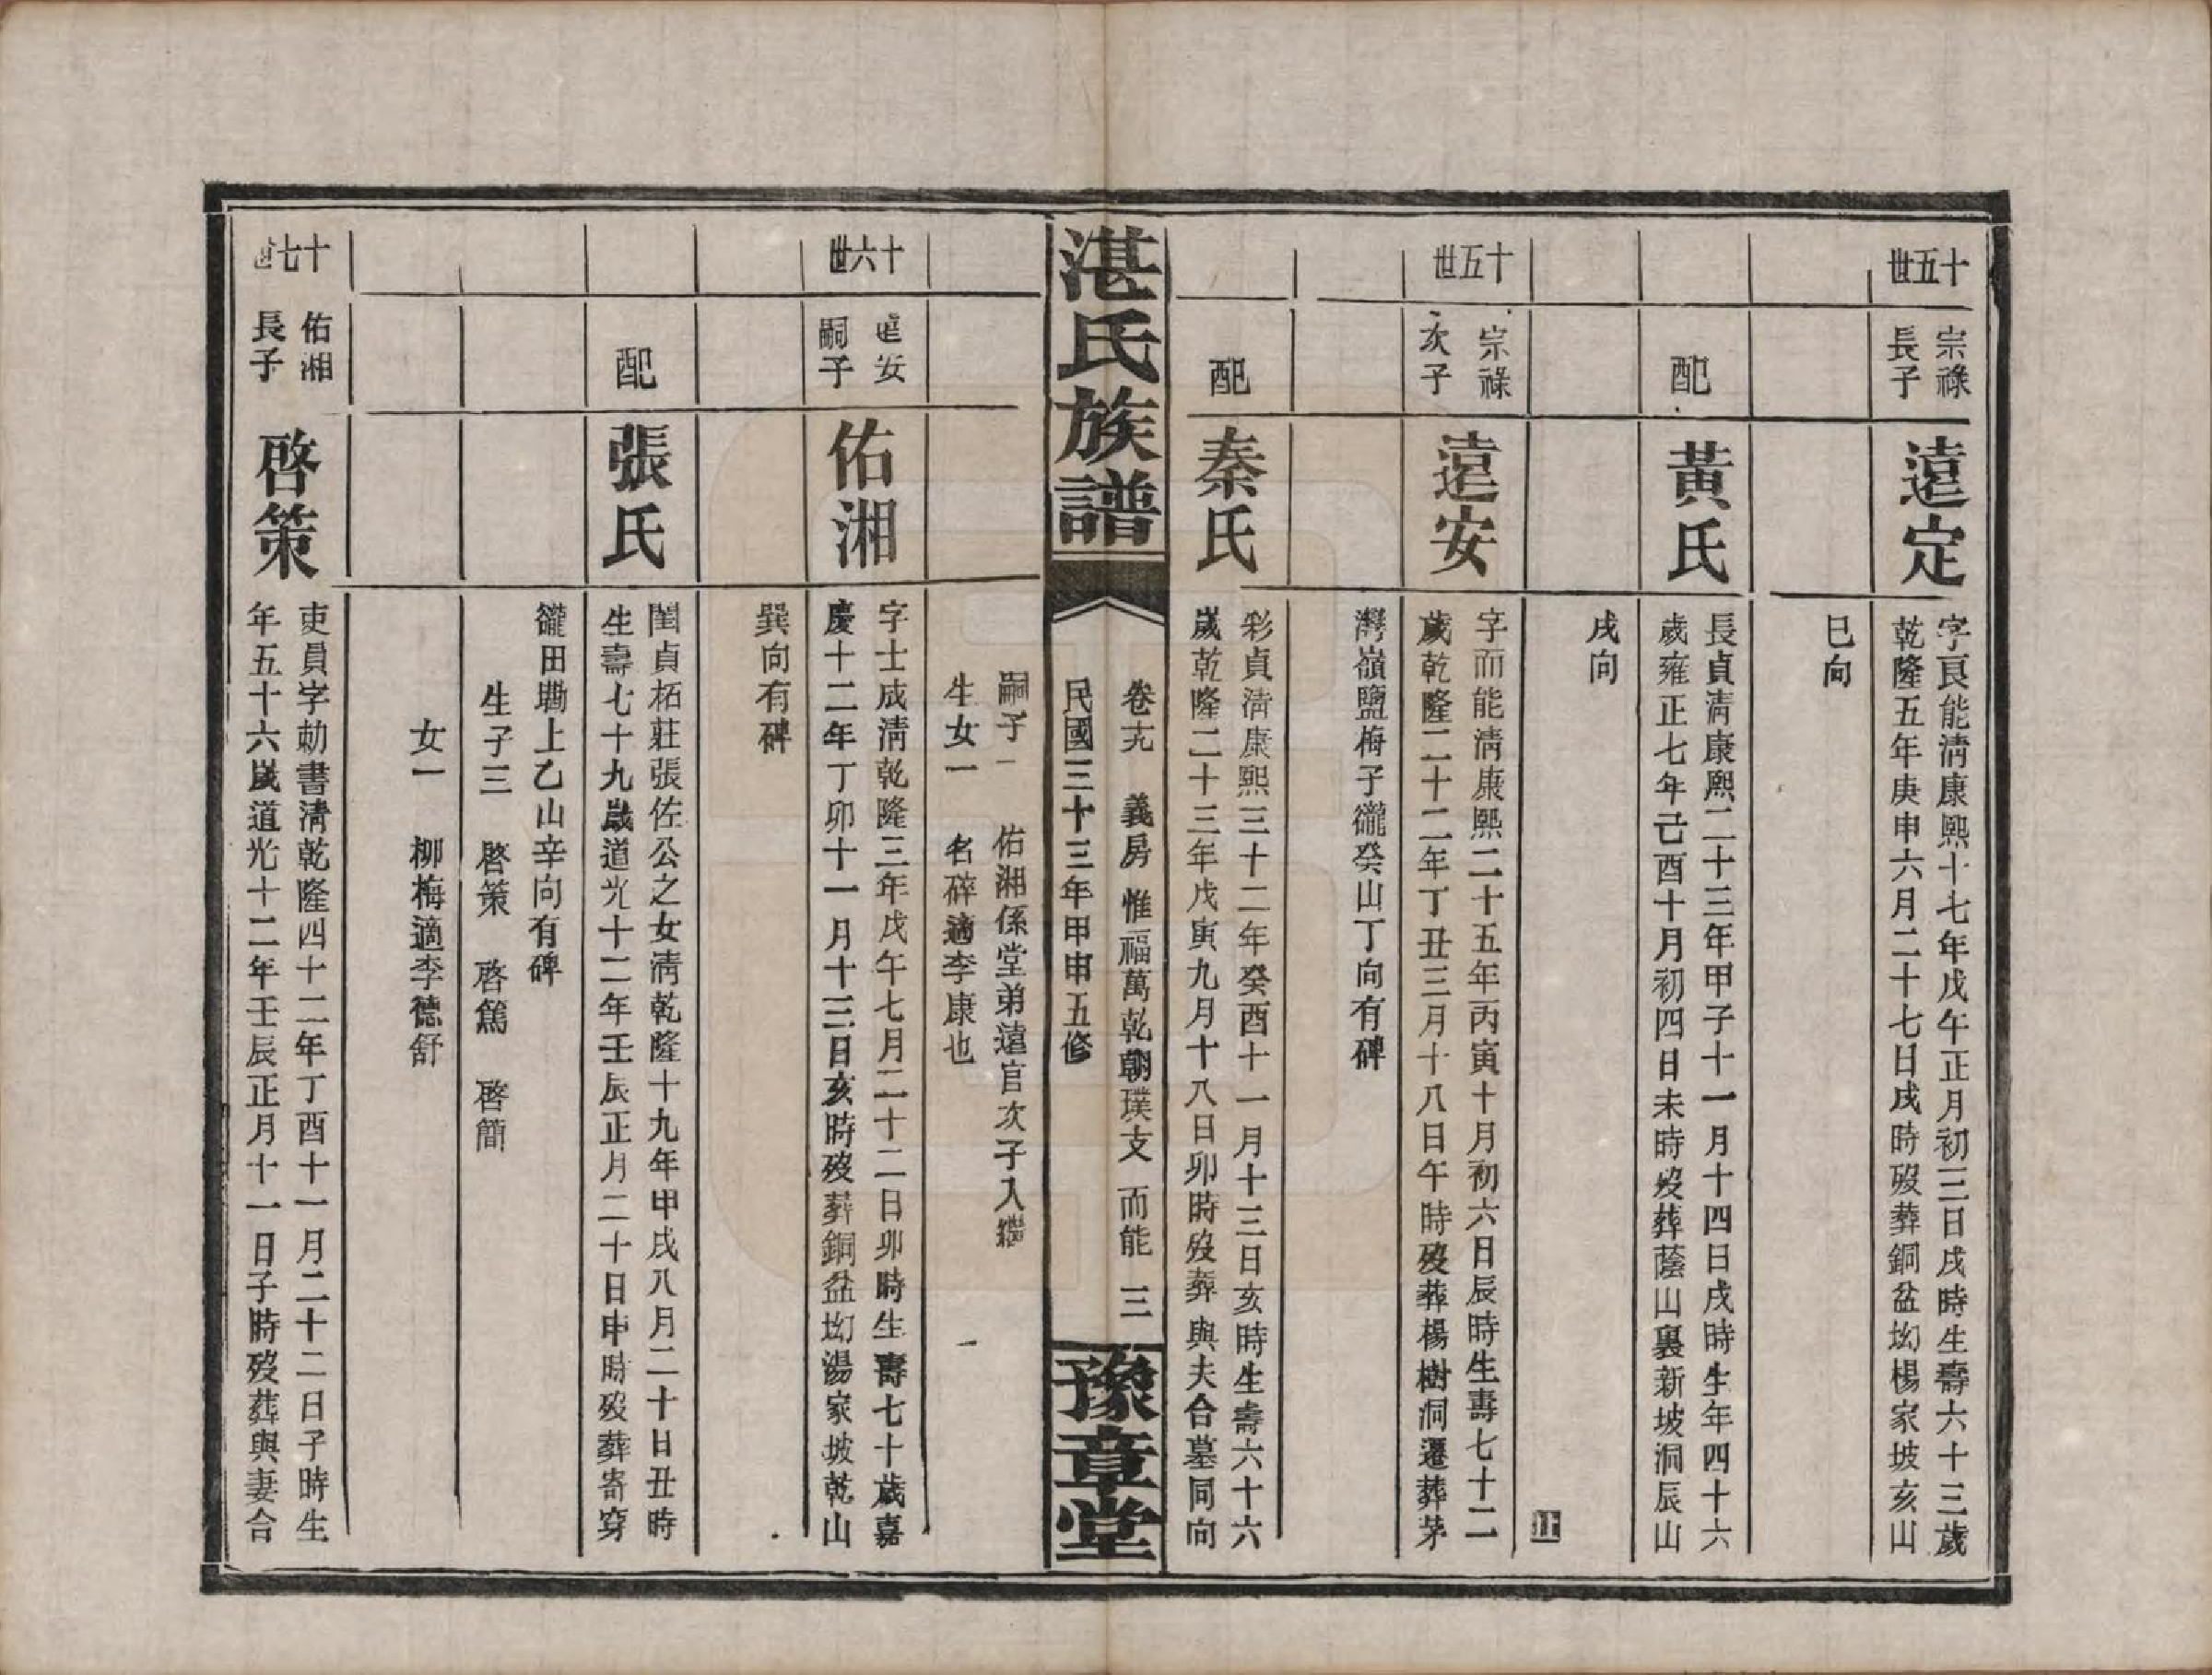 十五世
宗祿
長子
遠定
字良能淸康熙十七年戊午正月初三日戌時生壽六十三歲
乾隆五年庚申六月二十七日戌時歿葬銅盆坳楊家坡亥山
巳向
配
黃氏
長貞淸康熙二十三年甲子十一月十四日戌時生年四十六
歲雍正七年己酉十月初四日未時歿葬蔭山裏新坡洞辰山
戌向
止
十五世
宗祿
次子
遠安
字而能淸康熙二十五年丙寅十月初六日辰時生壽七十二
歲乾隆二十二年丁丑三月十八日午時歿葬楊樹洞遷葬茅
灣嶺鹽梅子𡾋癸山丁向有碑
配
秦氏
彩貞淸康熙三十二年癸酉十一月十三日亥時生壽六十六
歲乾隆二十三年戊寅九月十八日卯時歿葬與夫合墓同向
湛氏族譜
卷六 義房 惟福萬乾朝璞支 而能 三
民國三十三年甲申五修
豫章堂
嗣子一 佑湘係堂弟遠官次子入繼
生女一 名碎適李康也
十六世
遠安
嗣子
佑湘
字士成淸乾隆三年戊午七月二十二日卯時生壽七十歲嘉
慶十二年丁卯十一月十三日亥時歿葬銅盆坳湯家坡乾山
巽向有碑
配
張氏
閨貞柘莊張佐公之女淸乾隆十九年甲戌八月二十日丑時
生壽七十九歲道光十二年壬辰正月二十日申時歿葬寄穿
𡾋田墈上乙山辛向有碑
生子三 啓策 啓篤 啓簡
女一 柳梅適李德舒
十七世
佑湘
長子
啓策
吏員字勅書淸乾隆四十二年丁酉十一月二十二日子時生
年五十六歲道光十二年壬辰正月十一日子時歿葬與妻合